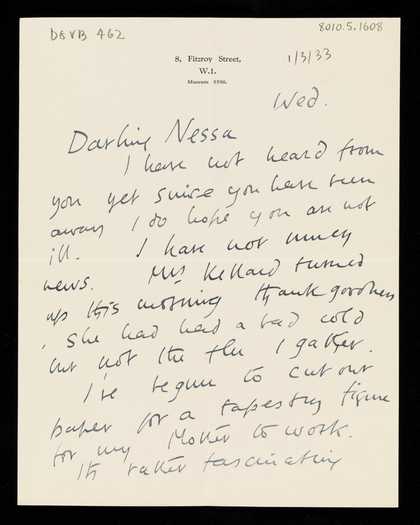 DGVB 462
8010.5.1608
8, Fitzroy Street,
W.1.
1/3/33
Museum 1930.
Wed.
Darling Nessa
I have not heard from
you yet since you have been
away I do hope you are not
ill. I have not much
news. Mrs Kelland turned
up this morning thank goodness
, she had had a bad cold
but not the flu I gather.
I've begun to cut out
paper for a tapestry figure
for my Mother to work.
Its rather fascinating